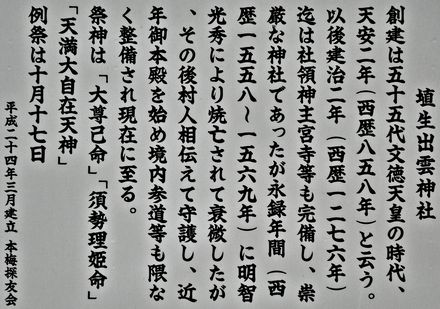 埴生出雲神社
創建は五十五代文徳天皇の時代、
天安二年(西歴八五八年)と云う。
以後建治二年(西歴一二七六年)
迄は社領神主宮寺等も完備し、崇
厳な神社であったが永録年間(西
歴一五五八〜一五六九年)に明智
光秀により焼亡されて衰微したが
、その後村人相伝えて守護し、近
年御本殿を始め境内参道等も隈な
く整備され現在に至る。
祭神は「大尊己命」「須勢理姫命」
「天満大自在天神」
例祭は十月十七日
平成二十四年三月建立 本梅探友会